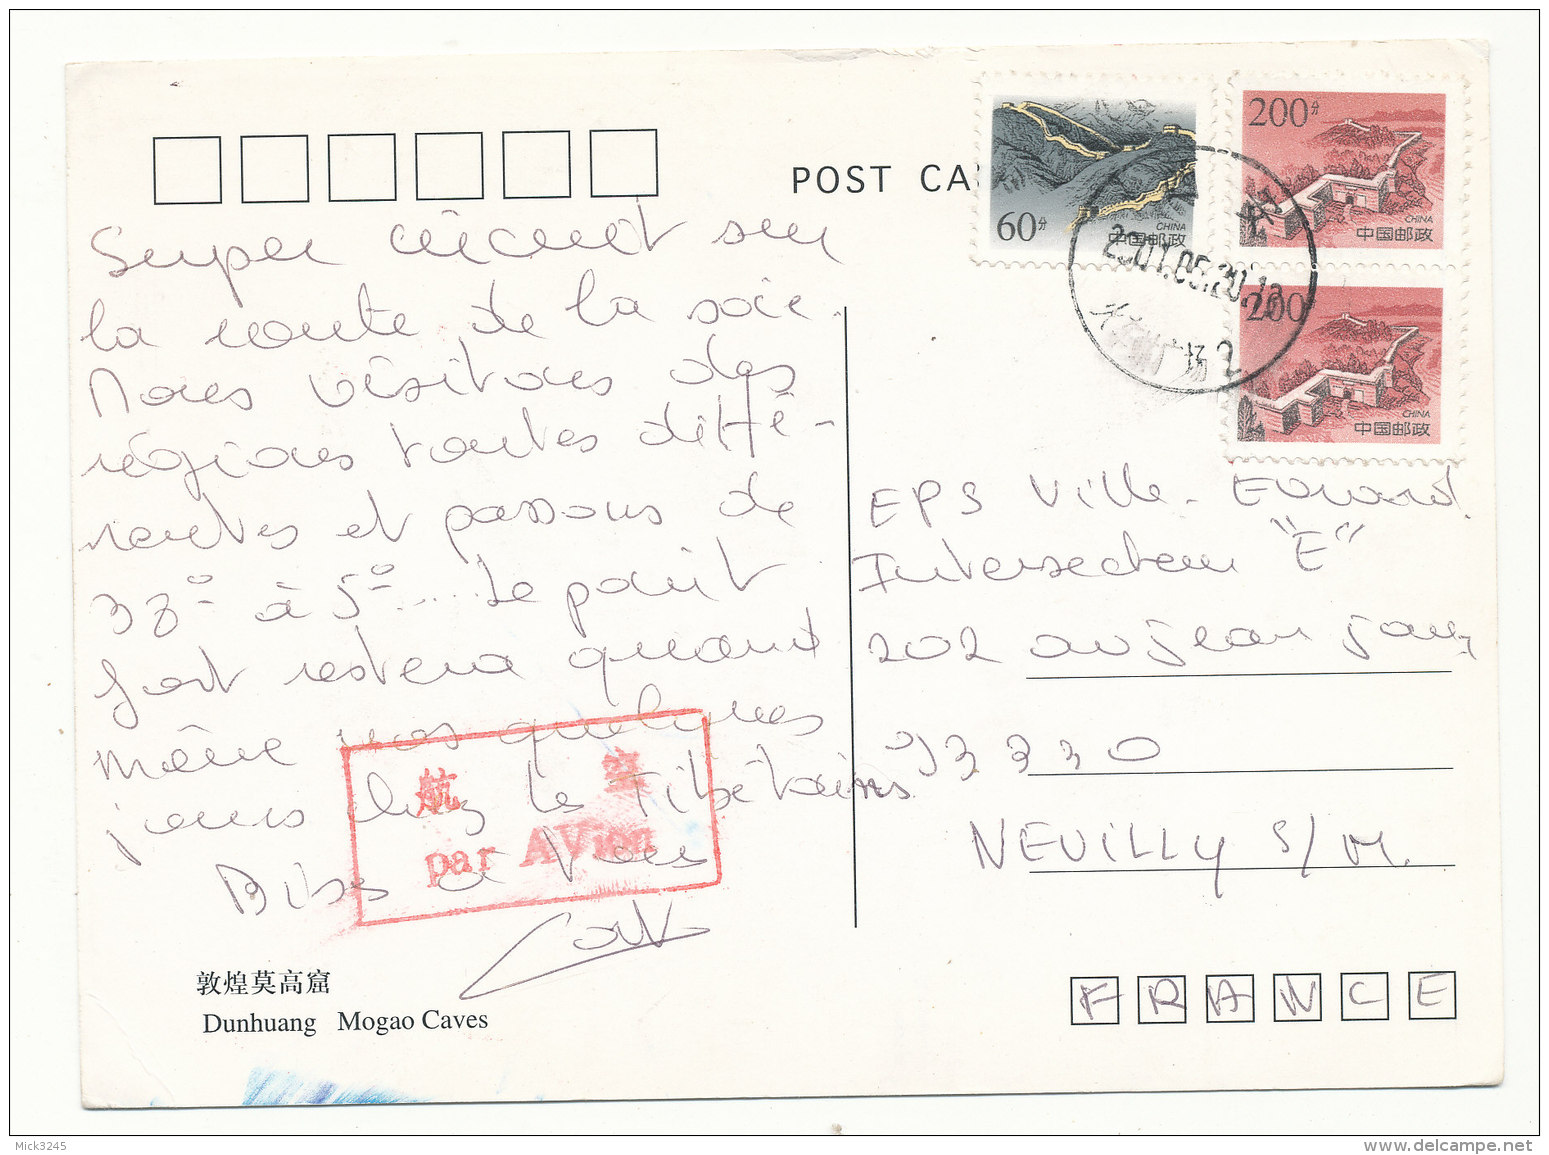 POST CA
60分
CHINA
中国邮政
200分
CHINA
中国邮政
200
CHINA
中国邮政
2001.05.20.12
2
Super circuit sur
la route de la soie.
Nous visitons des
régions toutes diffé-
rentes et passons de
38° à 5°.... Le point
fort restera quand
même nos quelques
jours chez les Tibétains
Bises à Vous
航 空
par AVion
EPS Ville-Evrard
Intersecteur "E"
202 av jean jaures
93330
NEUILLY S/M.
敦煌莫高窟
Dunhuang Mogao Caves
FRANCE
Mick3245
www.delcampe.net